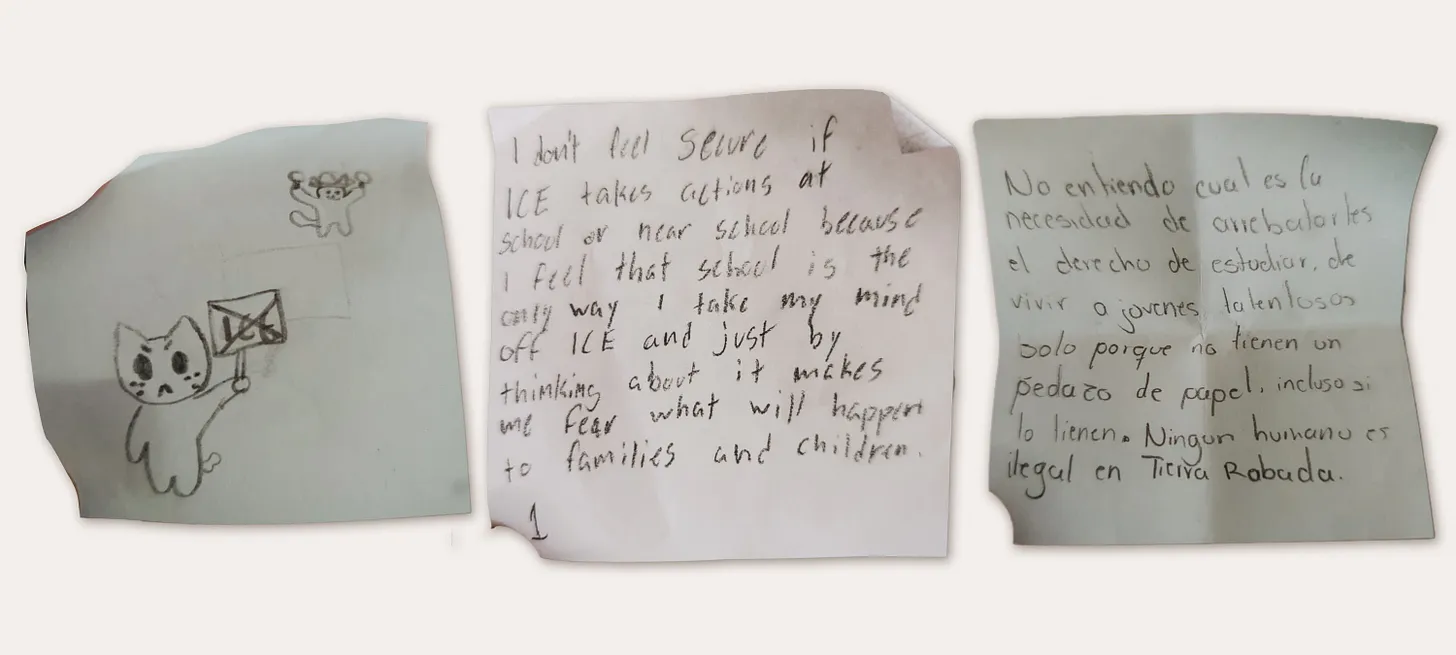 ICE
I don't feel secure if
ICE takes actions at
school or near school because
I feel that school is the
only way I take my mind
off ICE and just by
thinking about it makes
me fear what will happen
to families and children.
1
No entiendo cual es la
necesidad de arrebatarles
el derecho de estudiar, de
vivir a jovenes talentosos
solo porque no tienen un
pedazo de papel, incluso si
lo tienen. Ningun humano es
ilegal en Tierra Robada.